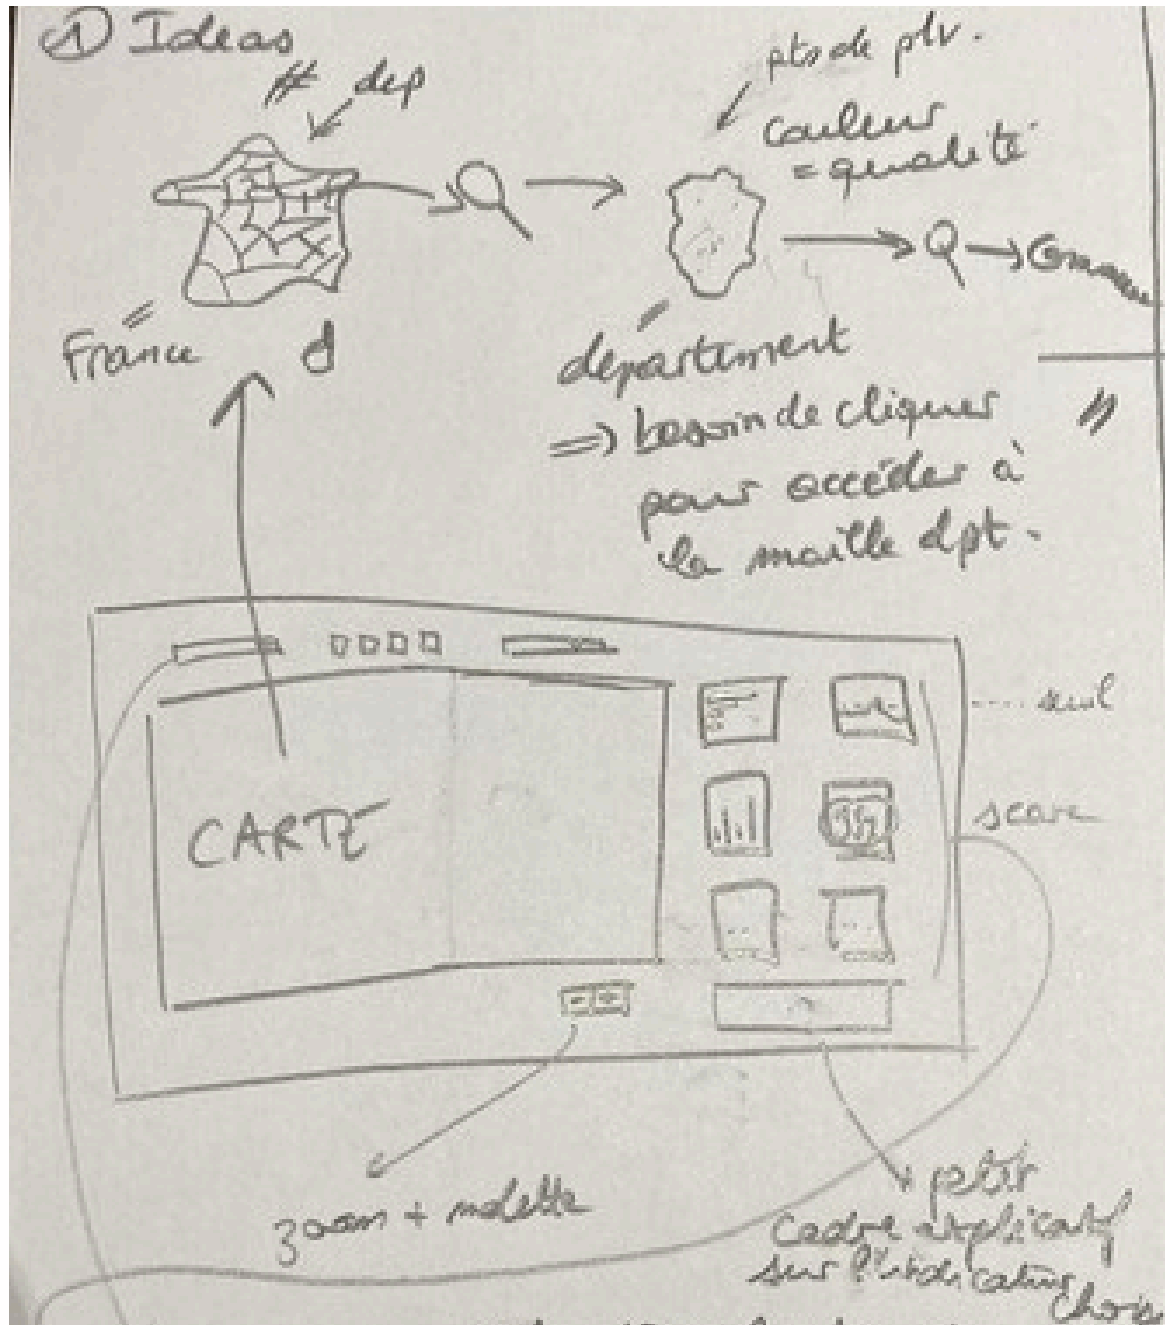 ① Ideas
# dep
pts de plv.
couleur
= qualité
France
département
=> besoin de cliquer
pour accéder à
la maille dpt.
CARTE
.... seuil
score
zoom + molette
+ petit
cadre explicatif
sur l'indicateur
choisi